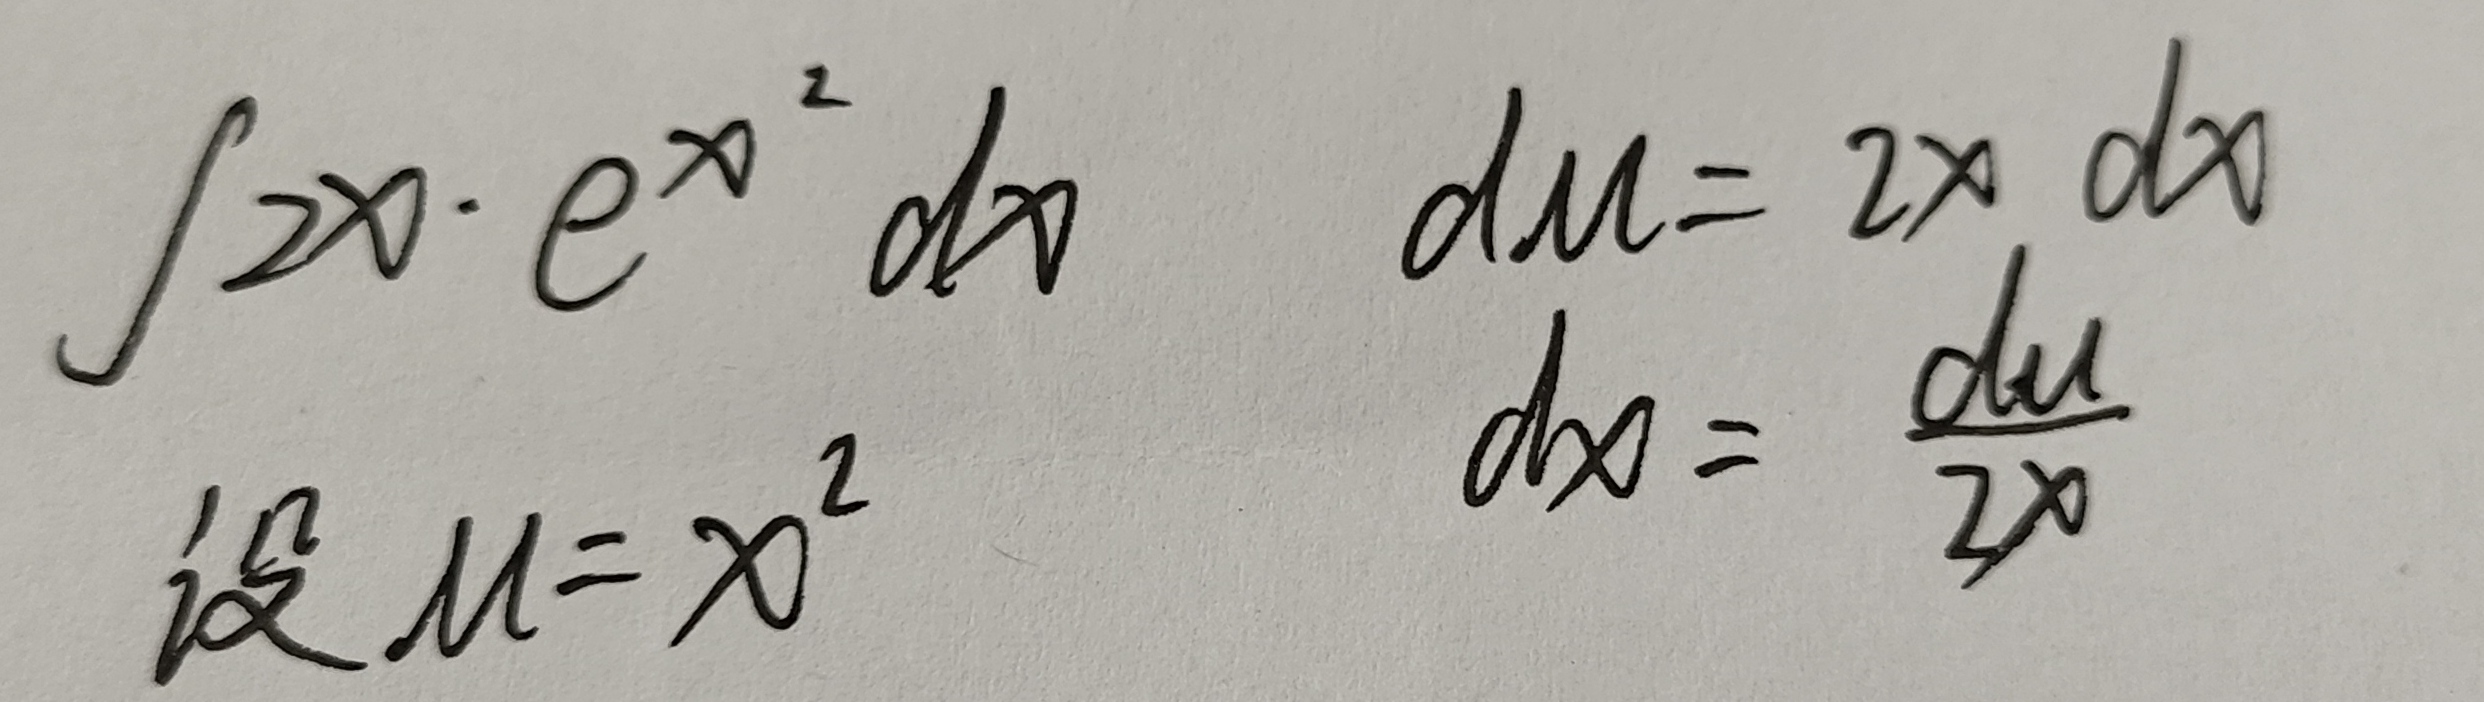 ∫2x·e^{x^2} dx
设 u=x^2
du= 2x dx
dx = \frac{du}{2x}